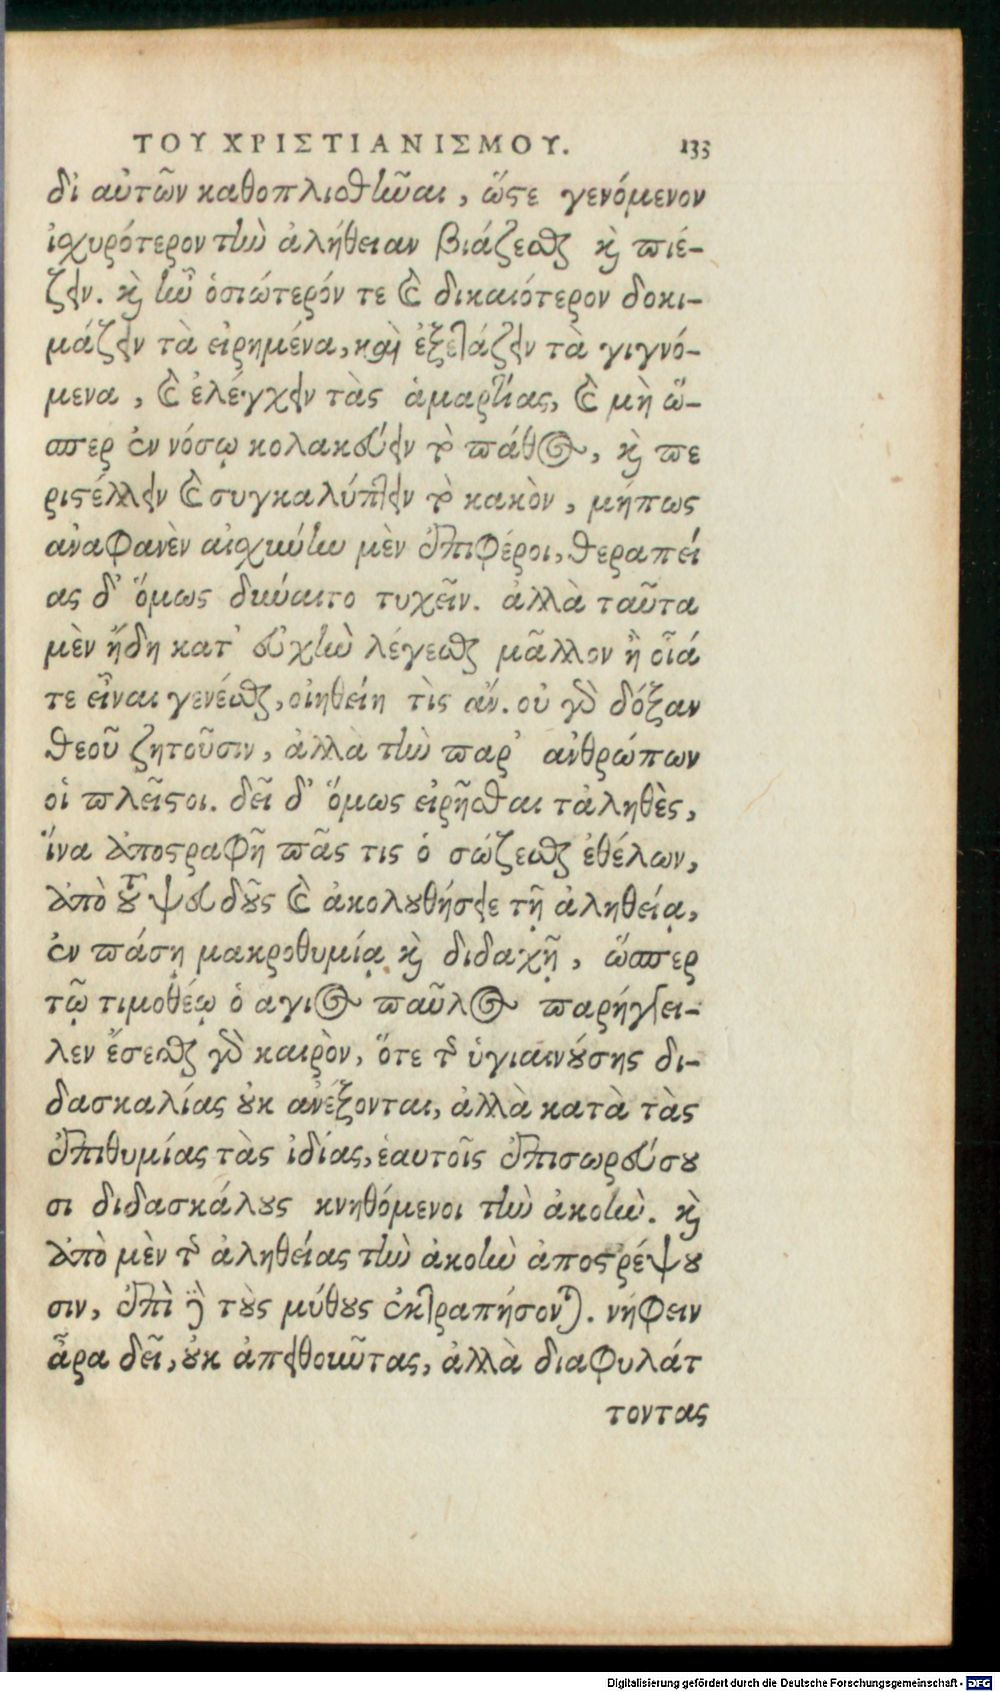 ΤΟΥ ΧΡΙΣΤΙΑΝΙΣΜΟΥ. 133
δι αὐτῶν καθοπλισθῆναι, ὥστε γενόμενον
ἰσχυρότερον τὴν ἀλήθειαν βιάζεσθαι καὶ πιέ-
ζειν. καὶ ἦν ὁσιώτερόν τε καὶ δικαιότερον δοκι-
μάζειν τὰ εἰρημένα, καὶ ἐξετάζειν τὰ γιγνό-
μενα, καὶ ἐλέγχειν τὰς ἁμαρτίας, καὶ μὴ ὥ-
σπερ ἐν νόσῳ κολακεύειν τὸ πάθος, καὶ πε
ριστέλλειν καὶ συγκαλύπτειν τὸ κακὸν, μήπως
ἀναφανὲν αἰσχύνην μὲν ἐπιφέροι, θεραπεί
ας δ' ὅμως δύναιτο τυχεῖν. ἀλλὰ ταῦτα
μὲν ἤδη κατ' εὐχὴν λέγεσθαι μᾶλλον ἢ οἷά
τε εἶναι γενέσθαι, οἰηθείη τὶς ἄν. οὐ γὰρ δόξαν
θεοῦ ζητοῦσιν, ἀλλὰ τὴν παρ' ἀνθρώπων
οἱ πλεῖστοι. δεῖ δ' ὅμως εἰρῆσθαι τἀληθὲς,
ἵνα ἀποστραφῇ πᾶς τις ὁ σώζεσθαι ἐθέλων,
ἀπὸ τοῦ ψευδοῦς καὶ ἀκολουθήσειε τῇ ἀληθείᾳ,
ἐν πάσῃ μακροθυμίᾳ καὶ διδαχῇ, ὥσπερ
τῷ τιμοθέῳ ὁ αγιος παῦλος παρήγγει-
λεν ἔσεσθαι γὰρ καιρὸν, ὅτε τῆς ὑγιαινούσης δι-
δασκαλίας οὐκ ἀνέξονται, ἀλλὰ κατὰ τὰς
ἐπιθυμίας τὰς ἰδίας, ἑαυτοῖς ἐπισωρεύσου
σι διδασκάλους κνηθόμενοι τὴν ἀκοὴν. καὶ
ἀπὸ μὲν τῆς ἀληθείας τὴν ἀκοὴν ἀποστρέψου
σιν, ἐπὶ δὲ τοὺς μύθους ἐκτραπήσονται. νήφειν
ἆρα δεῖ, οὐκ ἀπειθοῦντας, ἀλλὰ διαφυλάτ
τοντας
Digitalisierung gefördert durch die Deutsche Forschungsgemeinschaft - DFG